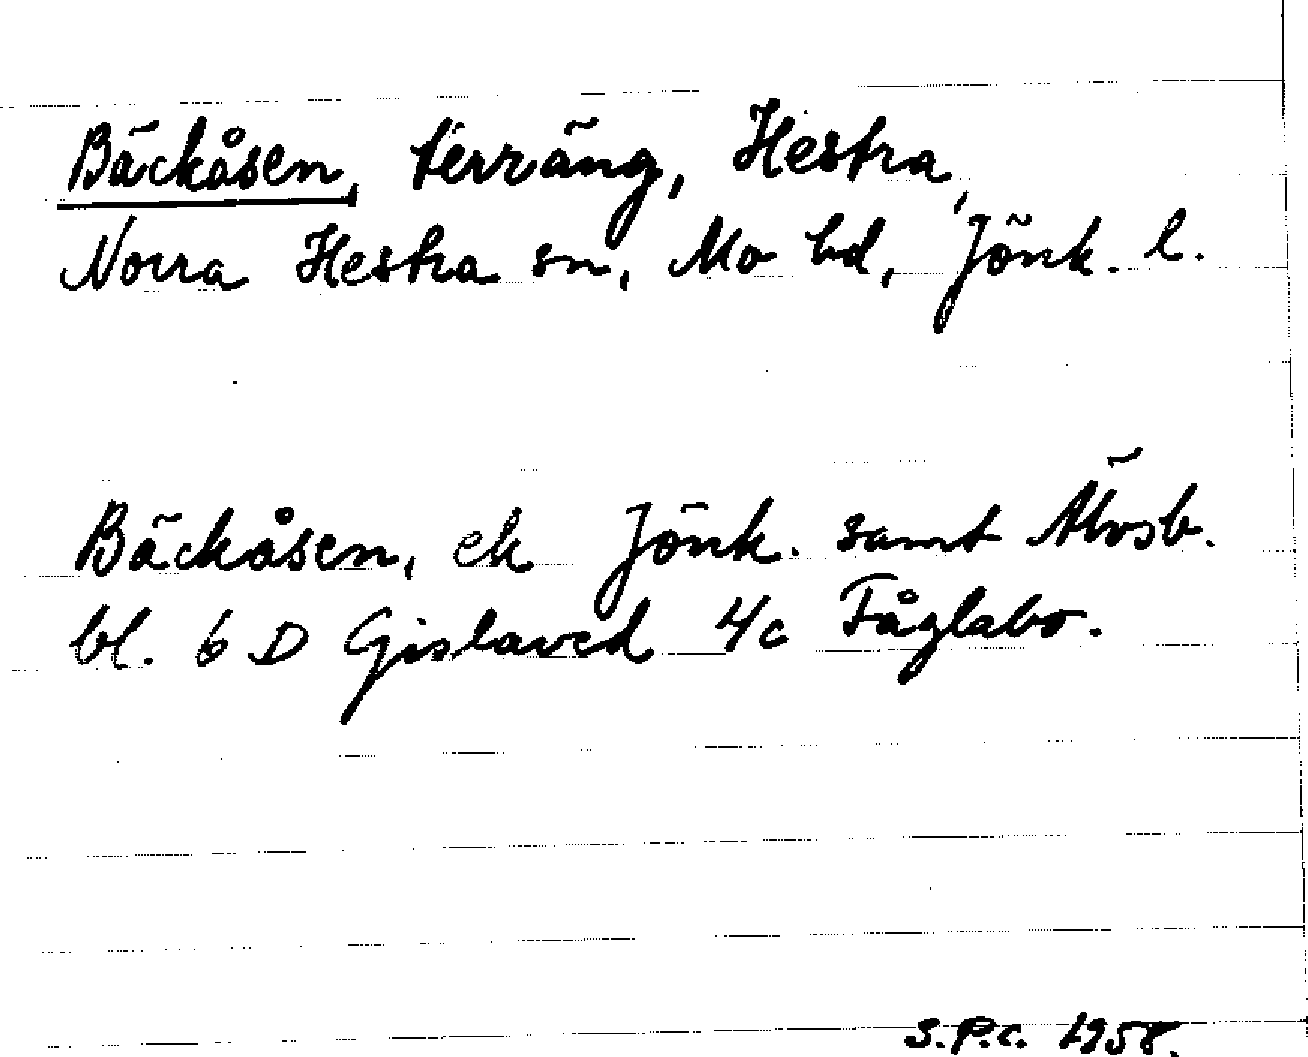 Bäckåsen, terräng, Hestra,
Norra Hestra sn, Mo hd, Jönk. l.
Bäckåsen, ek Jönk. samt Älvsb.
bl. 6 D Gislaved 4c Fåglabo.
S.P.C. 1958.